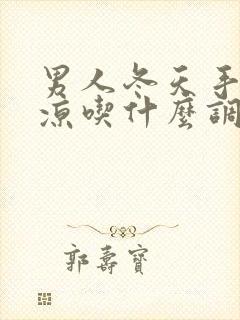 男人冬天手
凉喫什麼調
郭壽寶